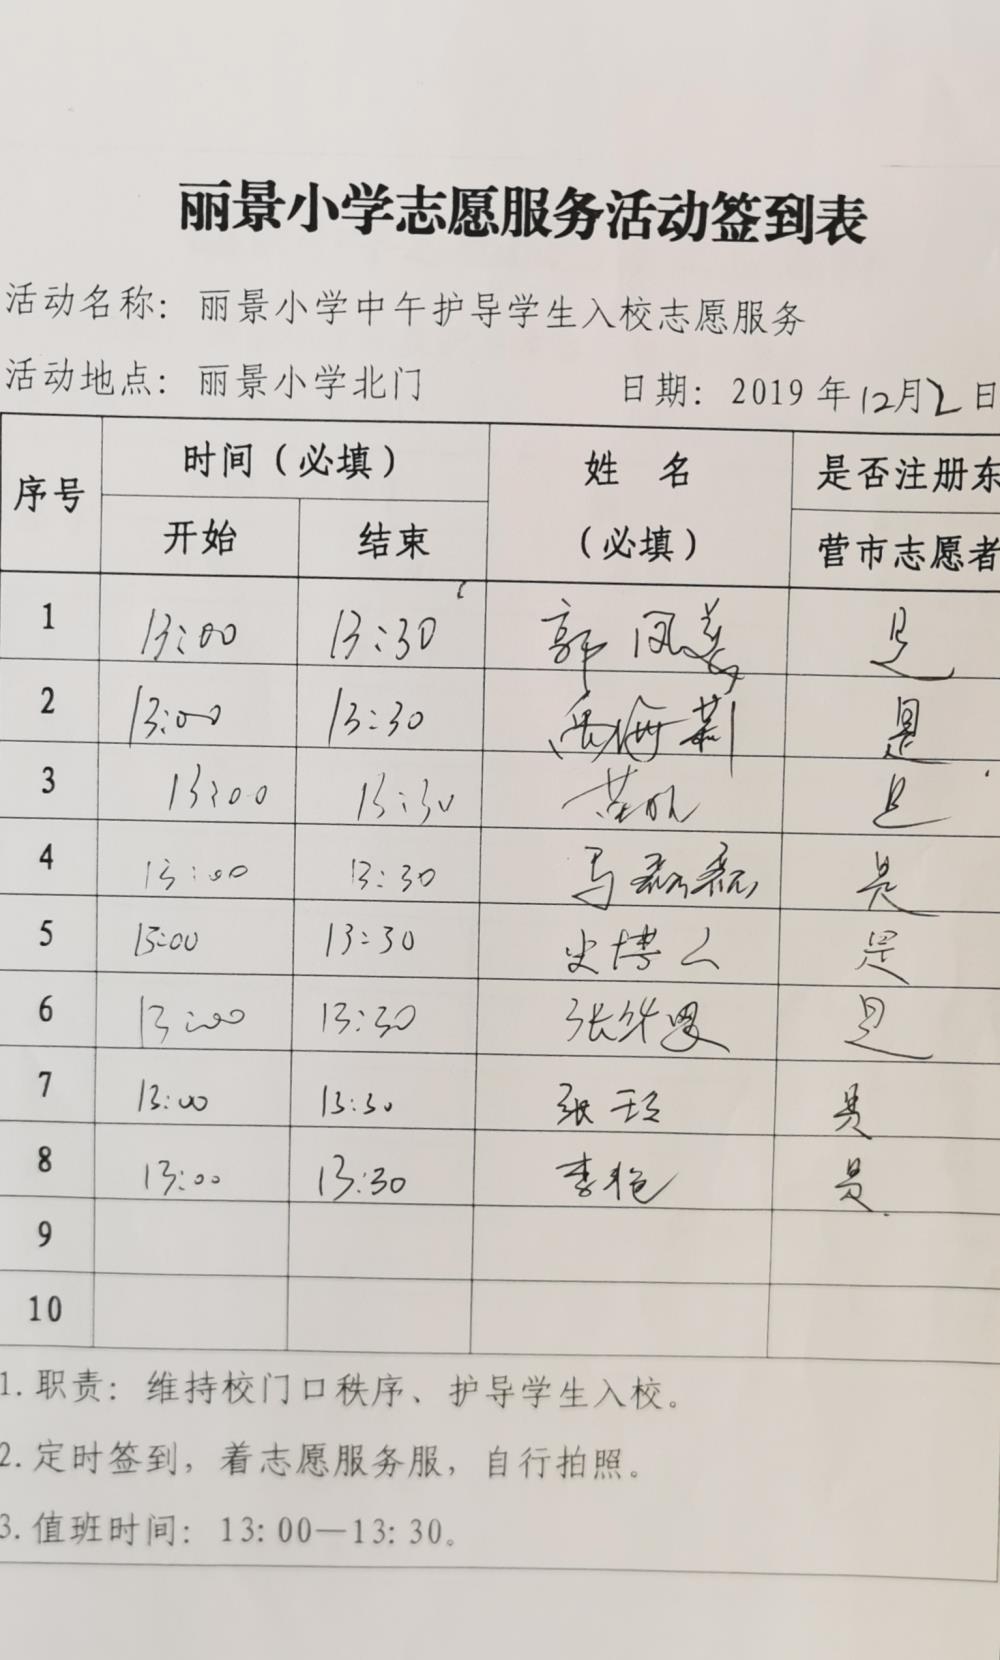 丽景小学志愿服务活动签到表
活动名称：丽景小学中午护导学生入校志愿服务
活动地点：丽景小学北门 日期：2019年12月2日
序号 时间（必填） 姓名（必填） 是否注册东营市志愿者
开始 结束
1 13:00 13:30 郭凤 是
2 13:00 13:30 是
3 13:00 13:30 是
4 13:00 13:30 马磊磊 是
5 13:00 13:30 史博 是
6 13:00 13:30 张 是
7 13:00 13:30 张 是
8 13:00 13:30 李艳 是
9
10
1.职责：维持校门口秩序、护导学生入校。
2.定时签到，着志愿服务服，自行拍照。
3.值班时间：13:00—13:30。